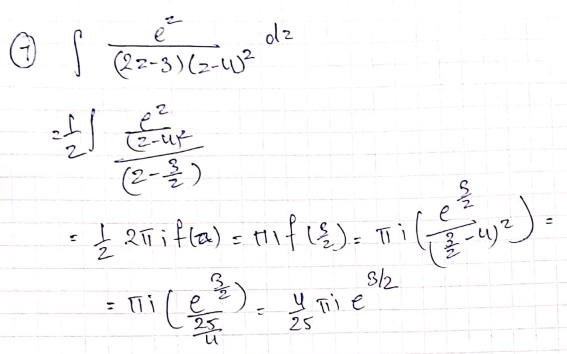 ⑦ ∫ e^z / ((2z-3)(z-4)²) dz
= 1/2 ∫ (e^z / (z-4)²) / (z - 3/2)
= 1/2 2πi f(a) = πi f(3/2) = πi (e^(3/2) / (3/2 - 4)²) =
= πi (e^(3/2) / (25/4)) = 4/25 πi e^(3/2)